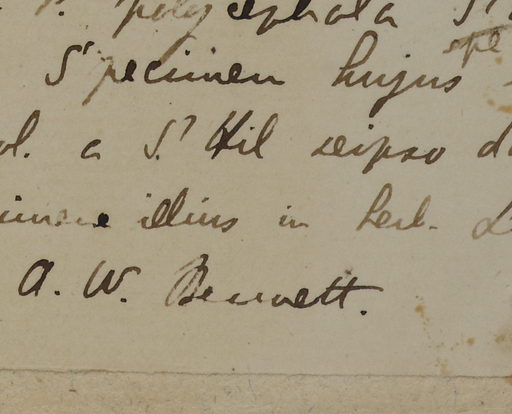 P. polycephala St
Specimen hujus spe
ol. a St Hil seipso d
imene illius in herb. D
A. W. Bennett.